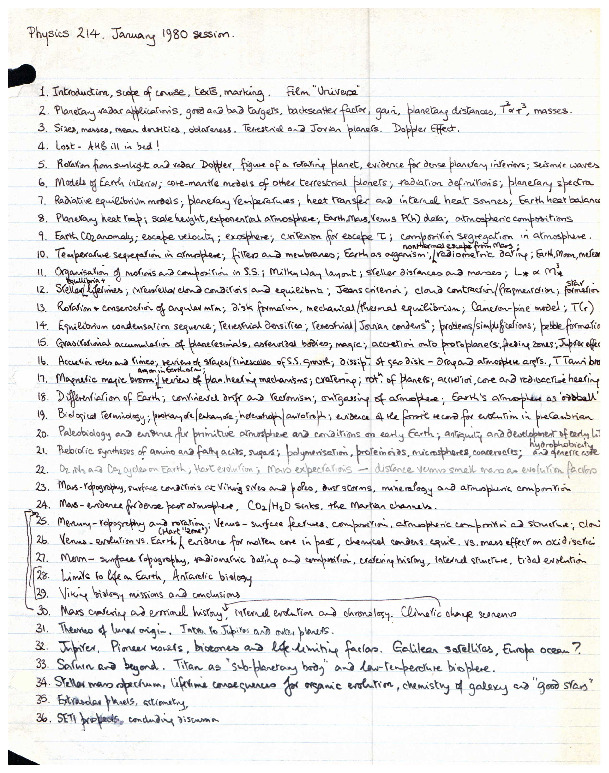 Physics 214. January 1980 session.
1. Introduction, scope of course, texts, marking. Film "Universe"
2. Planetary radar applications, good and bad targets, backscatter factor, gain, planetary distances, T² ∝ r³, masses.
3. Sizes, masses, mean densities, oblateness. Terrestrial and Jovian planets. Doppler Effect.
4. Lost - AHB ill in bed!
5. Rotation from sunlight and radar Doppler, figure of a rotating planet, evidence for dense planetary interiors; seismic waves
6. Models of Earth interior; core-mantle models of other terrestrial planets; radiation definitions; planetary spectra
7. Radiative equilibrium models; planetary temperatures; heat transfer and internal heat sources; Earth heat balance
8. Planetary heat trap; scale height, exponential atmosphere; Earth, Mars, Venus P(h) data; atmospheric compositions
9. Earth CO₂ anomaly; escape velocity; exosphere; criterion for escape τ; composition segregation in atmosphere.
nonthermal escape from Mars;
10. Temperature segregation in atmosphere; filters and membranes; Earth as organism; radiometric dating; Earth, Moon, meteor
11. Organisation of motions and composition in S.S.; Milky Way layout; stellar distances and masses; L* ∝ M*
12. Stellar lifetimes; interstellar cloud conditions and equilibria; Jeans criterion; cloud contraction/fragmentation; star formation
13. Rotation + conservation of angular mtm; disk formation, mechanical/thermal equilibrium; Cameron-pine model; T(r)
14. Equilibrium condensation sequence; Terrestrial densities; Terrestrial/Jovian condens"; problems/simplifications; pebble formation
15. Gravitational accumulation of planetesimals, asteroidal bodies; magic; accretion onto protoplanets; feeding zones; Jupiter effect
16. Accretion rates and times; review of stages/timescales of S.S. growth; dissip" of gas disk - drag and atmosphere args., T Tauri
17. Magnetic magic broom; review of plan. heating mechanisms; cratering; rot" of planets; accretion, core and radioactive heating
18. Differentiation of Earth; continental drift and tectonism; outgassing of atmosphere; Earth's atmosphere as oddball
19. Biological Terminology; prokaryote/eukaryote; heterotroph/autotroph; evidence of the fossil record for evolution in precambrian
20. Paleobiology and evidence for primitive atmosphere and conditions on early Earth; antiquity and development of early
hydrophobicity
21. Prebiotic syntheses of amino and fatty acids, sugars; polymerisation, proteinoids, microspheres, coacervates; and genetic code
22. and Ca cycle on Earth, Hart evolution; Mars expectations - distance versus small mass as evolution factors
23. Mars - topography, surface conditions at Viking sites and poles, dust storms, mineralogy and atmospheric composition
24. Mars - evidence for dense past atmosphere, CO₂/H₂O sinks, the Martian channels.
25. Mercury - topography and rotation; Venus - surface features, composition, atmospheric composition and structure;
(Hart "zone")
26. Venus - evolution vs. Earth; evidence for molten core in past, chemical condens. equil. vs. mass effect on oxidisation
27. Moon - surface topography, radiometric dating and composition, cratering history, internal structure, tidal evolution
28. Limits to life on Earth, Antarctic biology
29. Viking biology missions and conclusions
30. Mars cratering and erosional history, internal evolution and chronology. Climatic change scenarios
31. Theories of lunar origin. Intro to Jupiter and outer planets.
32. Jupiter, Pioneer results, biozones and life-limiting factors. Galilean satellites, Europa ocean?
33. Saturn and beyond. Titan as "sub-planetary body" and low-temperature biosphere.
34. Stellar mass spectrum, lifetime consequences for organic evolution, chemistry of galaxy and "good stars"
35. Extrasolar planets, astrometry,
36. SETI prospects, concluding discussion